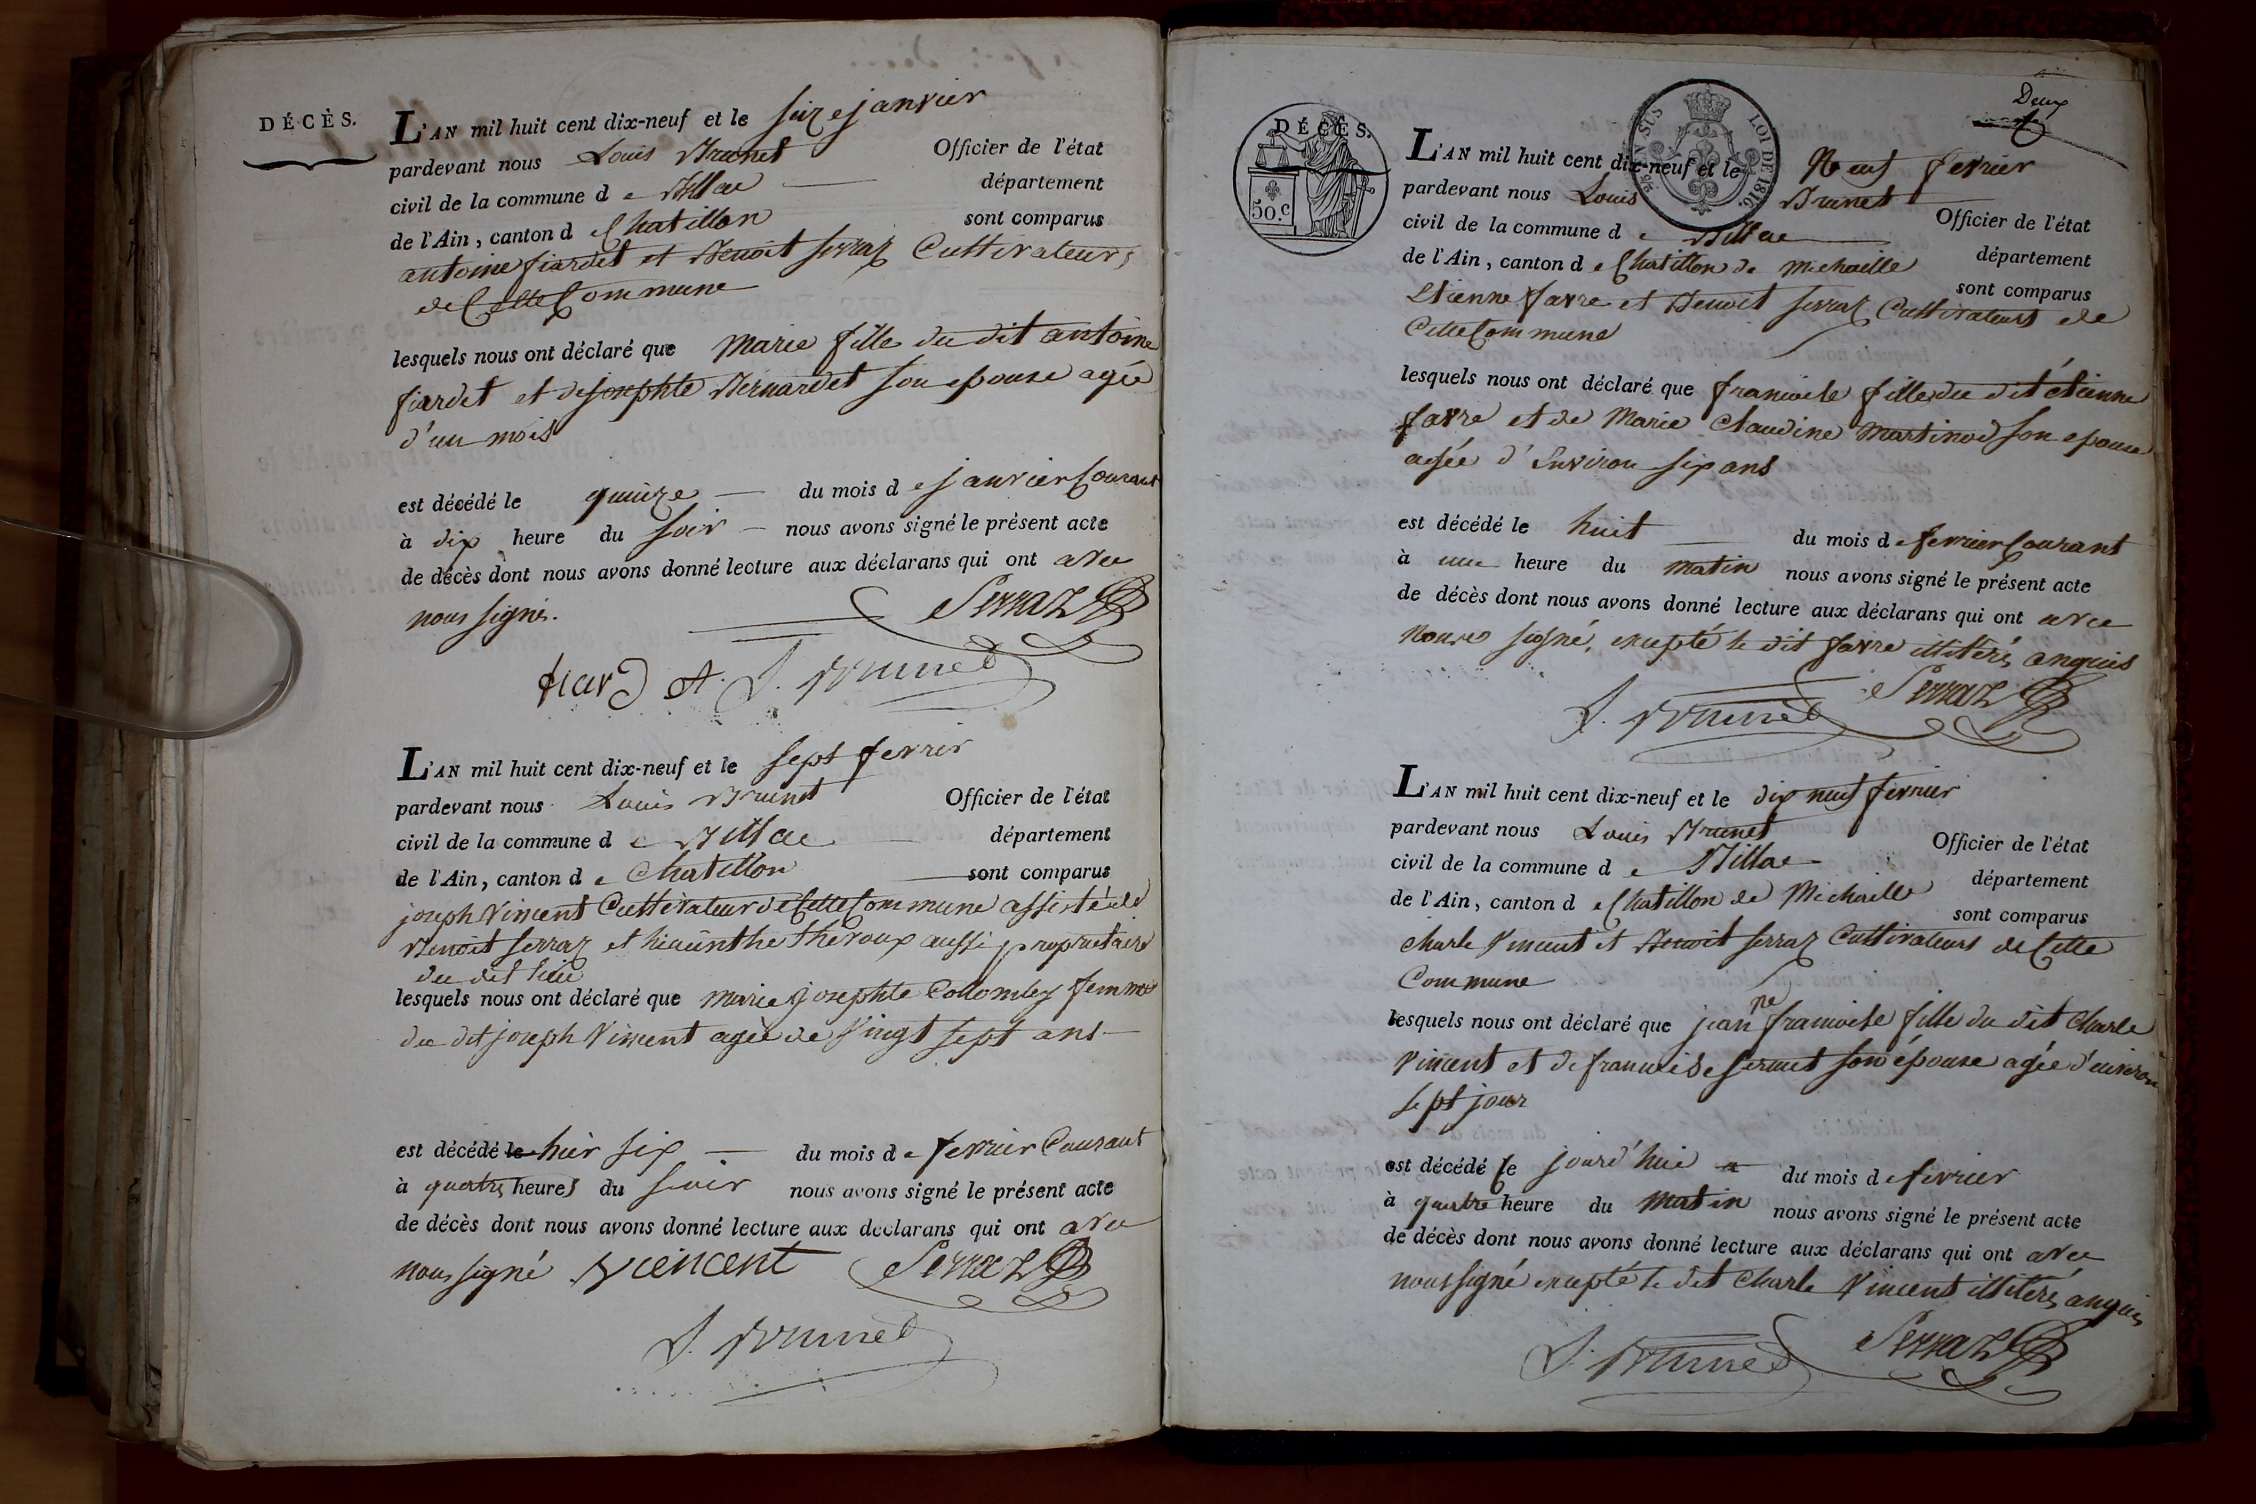 DÉCÈS.
L'AN mil huit cent dix-neuf et le seize janvier
pardevant nous Louis Brunet Officier de l'état
civil de la commune d e Billiae département
de l'Ain, canton d e Chatillon sont comparus
antoine fiardet et Benoit serraz Cultivateurs
de Cette Commune
lesquels nous ont déclaré que Marie fille du dit antoine
fiardet et de josephte Bernardet son epouse agée
d'un mois
est décédé le quinze du mois d e janvier Courant
à dix heure du soir nous avons signé le présent acte
de décès dont nous avons donné lecture aux déclarans qui ont avec
nous signés.
Serraz
fiard et L. Brunet
L'AN mil huit cent dix-neuf et le sept fevrier
pardevant nous Louis Brunet Officier de l'état
civil de la commune d e Billiae département
de l'Ain, canton d e Chatillon sont comparus
joseph Vincent Cultivateur de Cette Commune assisté de
Benoit serraz et hiacinthe theroux aussi proprietaire
du dit lieu
lesquels nous ont déclaré que marie josephte Collomby femme
du dit joseph Vincent agée de Vingt sept ans
est décédé le hier six du mois d e fevrier Courant
à quatre heures du soir nous avons signé le présent acte
de décès dont nous avons donné lecture aux declarans qui ont avec
nous signé vincent Serraz
L. Brunet
Deux
DÉCÈS.
50.c
LOI DE 1816.
L'AN mil huit cent dix-neuf et le Neuf fevrier
pardevant nous Louis Brunet Officier de l'état
civil de la commune d e Billiae département
de l'Ain, canton d e Chatillon de Michaille sont comparus
Etienne favre et Benoit serraz Cultivateurs de
Cette Commune
lesquels nous ont déclaré que francoise fille du dit étienne
favre et de Marie Claudine Martinod son epouse
agée d'Environ six ans
est décédé le huit du mois d e fevrier Courant
à une heure du matin nous avons signé le présent acte
de décès dont nous avons donné lecture aux déclarans qui ont avec
Nous signé, excepté le dit favre illiteré, enquis
L. Brunet Serraz
L'AN mil huit cent dix-neuf et le dix neuf fevrier
pardevant nous Louis Brunet Officier de l'état
civil de la commune d e Billiae département
de l'Ain, canton d e Chatillon de Michaille sont comparus
Charle Vincent et Benoit serraz Cultivateurs de Cette
Commune
lesquels nous ont déclaré que jeanne francoise fille du dit Charle
Vincent et de francoise sermet son épouse agée d'environ
sept jour
est décédé le jourd'hui du mois d e fevrier
à quatre heure du matin nous avons signé le présent acte
de décès dont nous avons donné lecture aux déclarans qui ont avec
nous signé excepté le dit Charle Vincent illiteré, enquis
L. Brunet Serraz